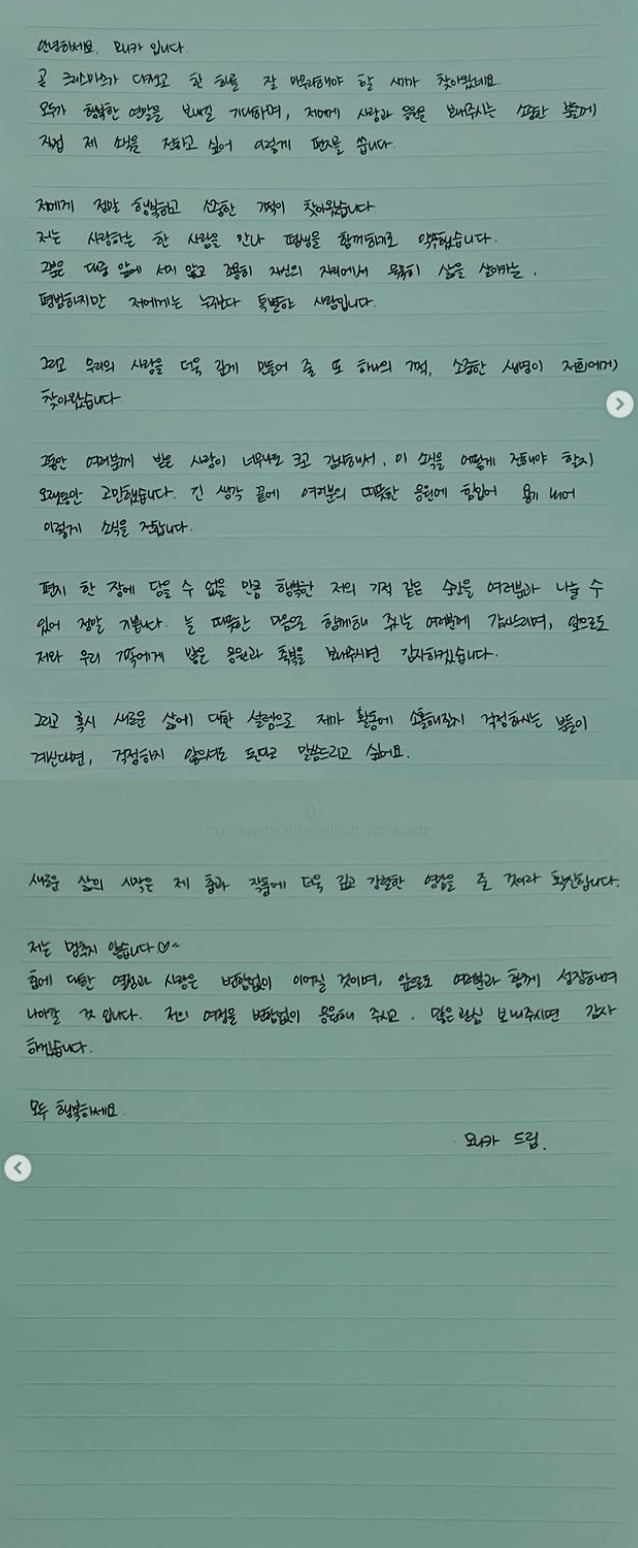 안녕하세요. 모니카 입니다.
곧 크리스마스가 다가오고 한 해를 잘 마무리해야 할 시기가 찾아왔네요.
모두가 행복한 연말을 보내길 기대하며, 저에게 사랑과 응원을 보내주시는 소중한 분들께
직접 제 소식을 전하고 싶어 이렇게 편지를 씁니다.
저에게 정말 행복하고 소중한 기적이 찾아왔습니다
저는 사랑하는 한 사람을 만나 평생을 함께하기로 약속했습니다.
그분은 대중 앞에 서지 않고 조용히 자신의 자리에서 묵묵히 삶을 살아가는,
평범하지만 저에게는 누구보다 특별한 사람입니다.
그리고 우리의 사랑을 더욱 깊게 만들어 줄 또 하나의 기적, 소중한 생명이 저희에게
찾아왔습니다
그동안 여러분께 받은 사랑이 너무나도 크고 감사해서, 이 소식을 어떻게 전해야 할지
오랫동안 고민했습니다. 긴 생각 끝에 여러분의 따뜻한 응원에 힘입어 용기 내어
이렇게 소식을 전합니다.
편지 한 장에 담을 수 없을 만큼 행복한 저의 기적 같은 순간을 여러분과 나눌 수
있어 정말 기쁩니다. 늘 따뜻한 마음으로 함께해 주시는 여러분께 감사드리며, 앞으로도
저와 우리 가족에게 많은 응원과 축복을 보내주시면 감사하겠습니다.
그리고 혹시 새로운 삶에 대한 설렘으로 제가 활동에 소홀해질지 걱정하시는 분들이
계신다면, 걱정하지 않으셔도 된다고 말씀드리고 싶어요.
새로운 삶의 시작은 제 춤과 작품에 더욱 깊고 강렬한 영감을 줄 것이라 확신합니다.
저는 멈추지 않습니다♡~
춤에 대한 열정과 사랑은 변함없이 이어질 것이며, 앞으로도 여러분과 함께 성장하며
나아갈 것 입니다. 저의 여정을 변함없이 응원해 주시고, 많은 관심 보내주시면 감사
하겠습니다.
모두 행복하세요
모니카 드림.